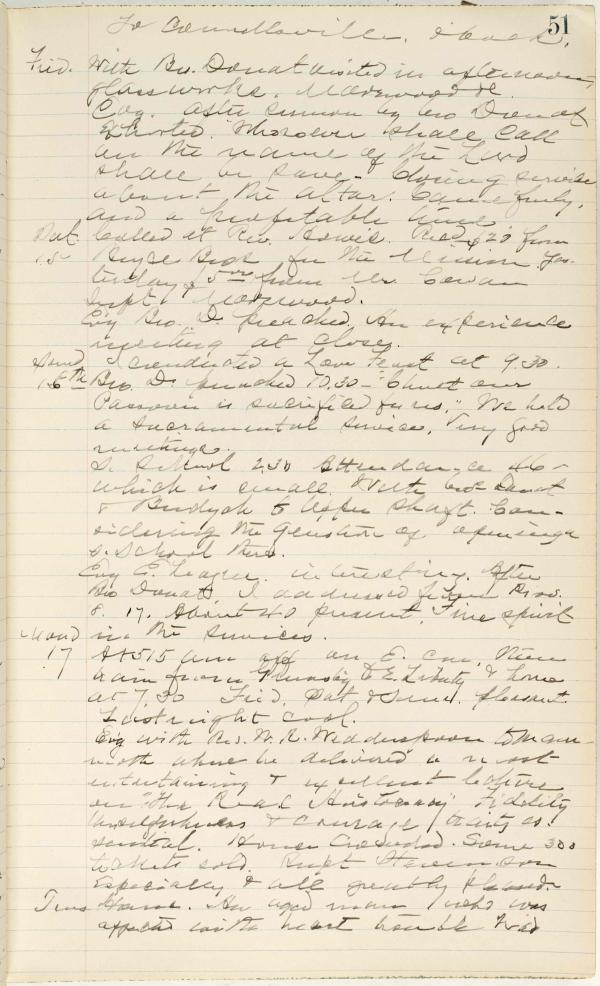 51
To Connellsville. & back.
Frid. With Bro. Donat visited in afternoon
glass works. Moorewood &c.
Eng. after sermon by bro Donat
Exhorted. "Whosoever shall call
on the name of the Lord
shall be save." Closing service
about the altar. Came freely.
and a profitable time
Sat. Called at Rev. Howis. Recd $20 from
15 Bros for the Mission yes-
terday & 5.00 from Mr. Cowan
Supt Moorewood.
Evg Bro. D. preached. An experience
meeting at close.
Sund I conducted a Love Feast at 9.30.
16th Bro. D. preached 10.30 - "Christ our
Passover is sacrificed for us." We held
a sacramental service. Very good
meetings.
S. School 2.30 Attendance 46 -
which is small. With bro Donat
& to Upper Shaft. Con-
sidering the question of opening a
S. School there.
Evg E. League. interesting. After
Bro Donat, I addressed from Prov.
8. 17. About 40 present. Fine spirit
in the services.
Mond At 5 15 am off on E. car. then
17 train from to E. Liberty & home
at 7.30 Frid. Sat & Sund. pleasant.
Last night cool.
Evg with Rev. W. R. Wedderspoon to Mam-
moth where he delivered a most
entertaining & excellent lecture
on "The Real Aristocracy" Fidelity
Unselfishness & Courage traits es-
sential. House Crowded. Some 300
tickets sold. Supt Stevenson
especially & all greatly pleased.
Tues Home. An aged man who was
affected with heart trouble